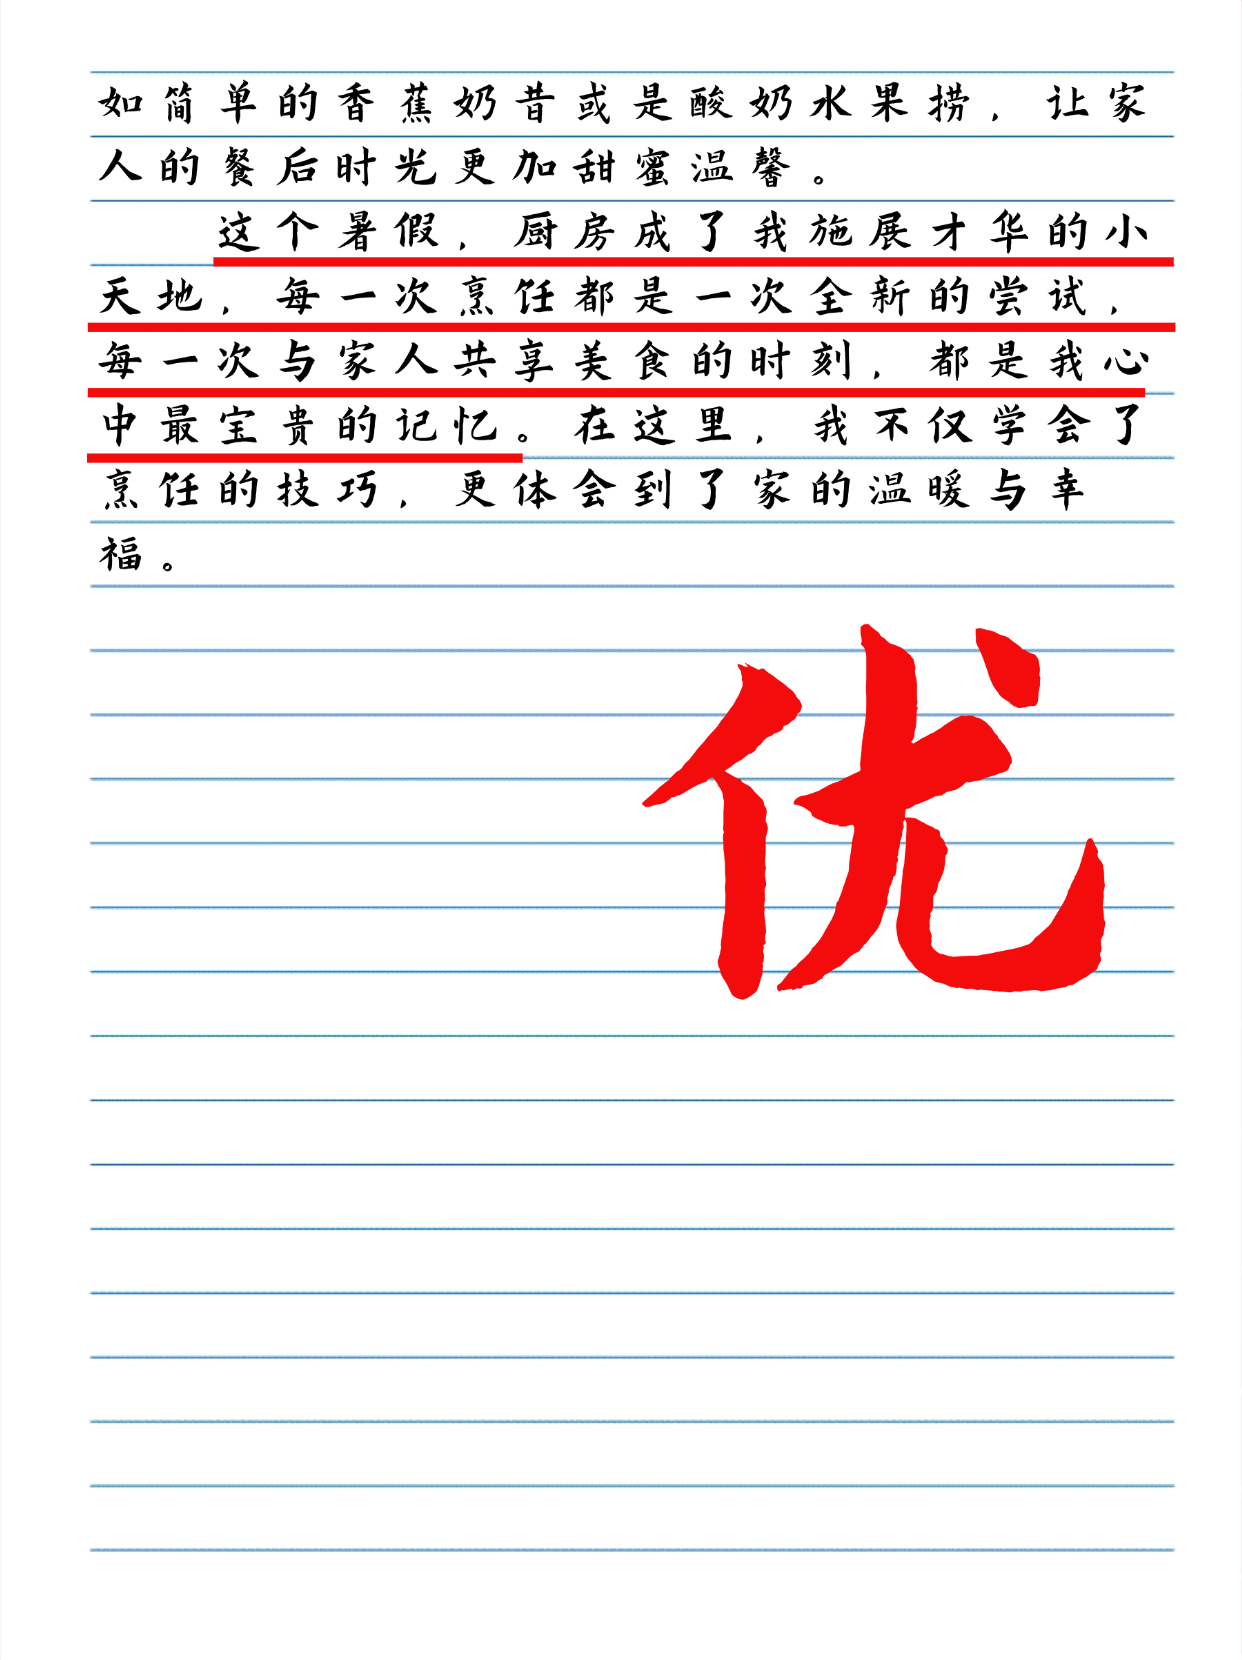 如简单的香蕉奶昔或是酸奶水果捞，让家
人的餐后时光更加甜蜜温馨。
这个暑假，厨房成了我施展才华的小
天地，每一次烹饪都是一次全新的尝试，
每一次与家人共享美食的时刻，都是我心
中最宝贵的记忆。在这里，我不仅学会了
烹饪的技巧，更体会到了家的温暖与幸
福。
优